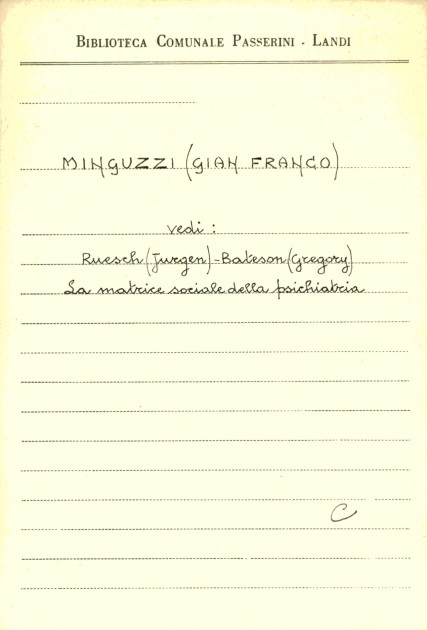 BIBLIOTECA COMUNALE PASSERINI - LANDI
MINGUZZI (GIAN FRANCO)
vedi :
Ruesch (Jurgen) - Bateson (Gregory)
La matrice sociale della psichiatria
C